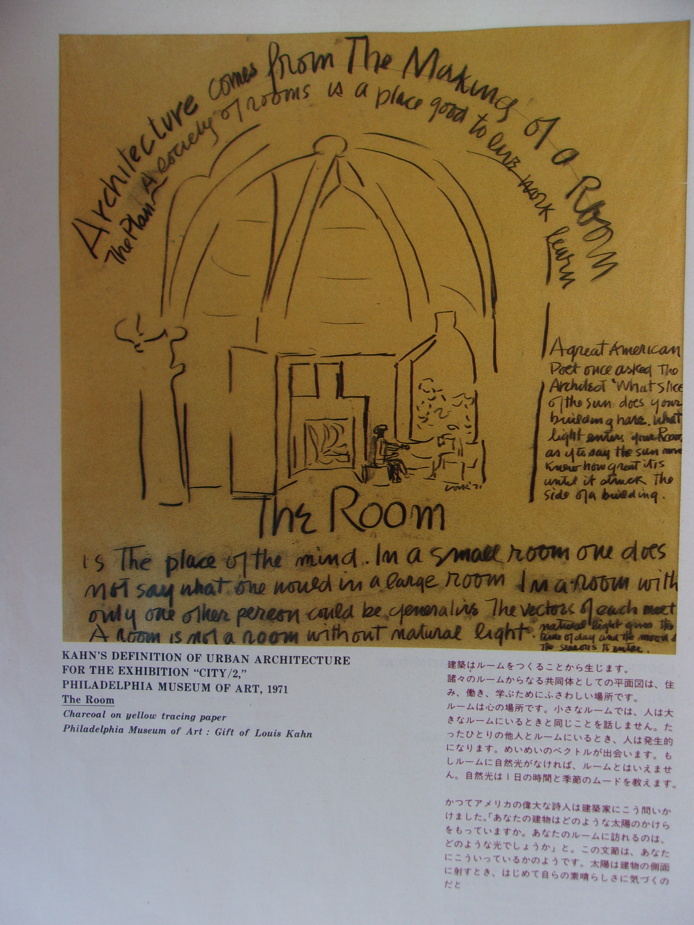 Architecture comes from The Making of a Room
The Plan A society of rooms is a place good to live work learn
A great American
Poet once asked The
Architect 'What slice
of the sun does your
building have. What
light enters your Room
as if to say the sun never
knew how great it is
until it struck The
side of a building.
The Room
is The place of the mind. In a small room one does
not say what one would in a large room In a room with
only one other person could be generative The vectors of each meet
A room is not a room without natural light
natural light gives the
time of day and the mood of
the seasons to enter.
KAHN'S DEFINITION OF URBAN ARCHITECTURE
FOR THE EXHIBITION "CITY/2,"
PHILADELPHIA MUSEUM OF ART, 1971
The Room
Charcoal on yellow tracing paper
Philadelphia Museum of Art : Gift of Louis Kahn
建築はルームをつくることから生じます。
諸々のルームからなる共同体としての平面図は、住
み、働き、学ぶためにふさわしい場所です。
ルームは心の場所です。小さなルームでは、人は大
きなルームにいるときと同じことを話しません。た
ったひとりの他人とルームにいるとき、人は発生的
になります。めいめいのベクトルが出会います。も
しルームに自然光がなければ、ルームとはいえませ
ん。自然光は1日の時間と季節のムードを教えます。
かつてアメリカの偉大な詩人は建築家にこう問いか
けました。「あなたの建物はどのような太陽のかけら
をもっていますか。あなたのルームに訪れるのは、
どのような光でしょうか」と。この文節は、あなた
にこういっているかのようです。太陽は建物の側面
に射すとき、はじめて自らの素晴らしさに気づくの
だと